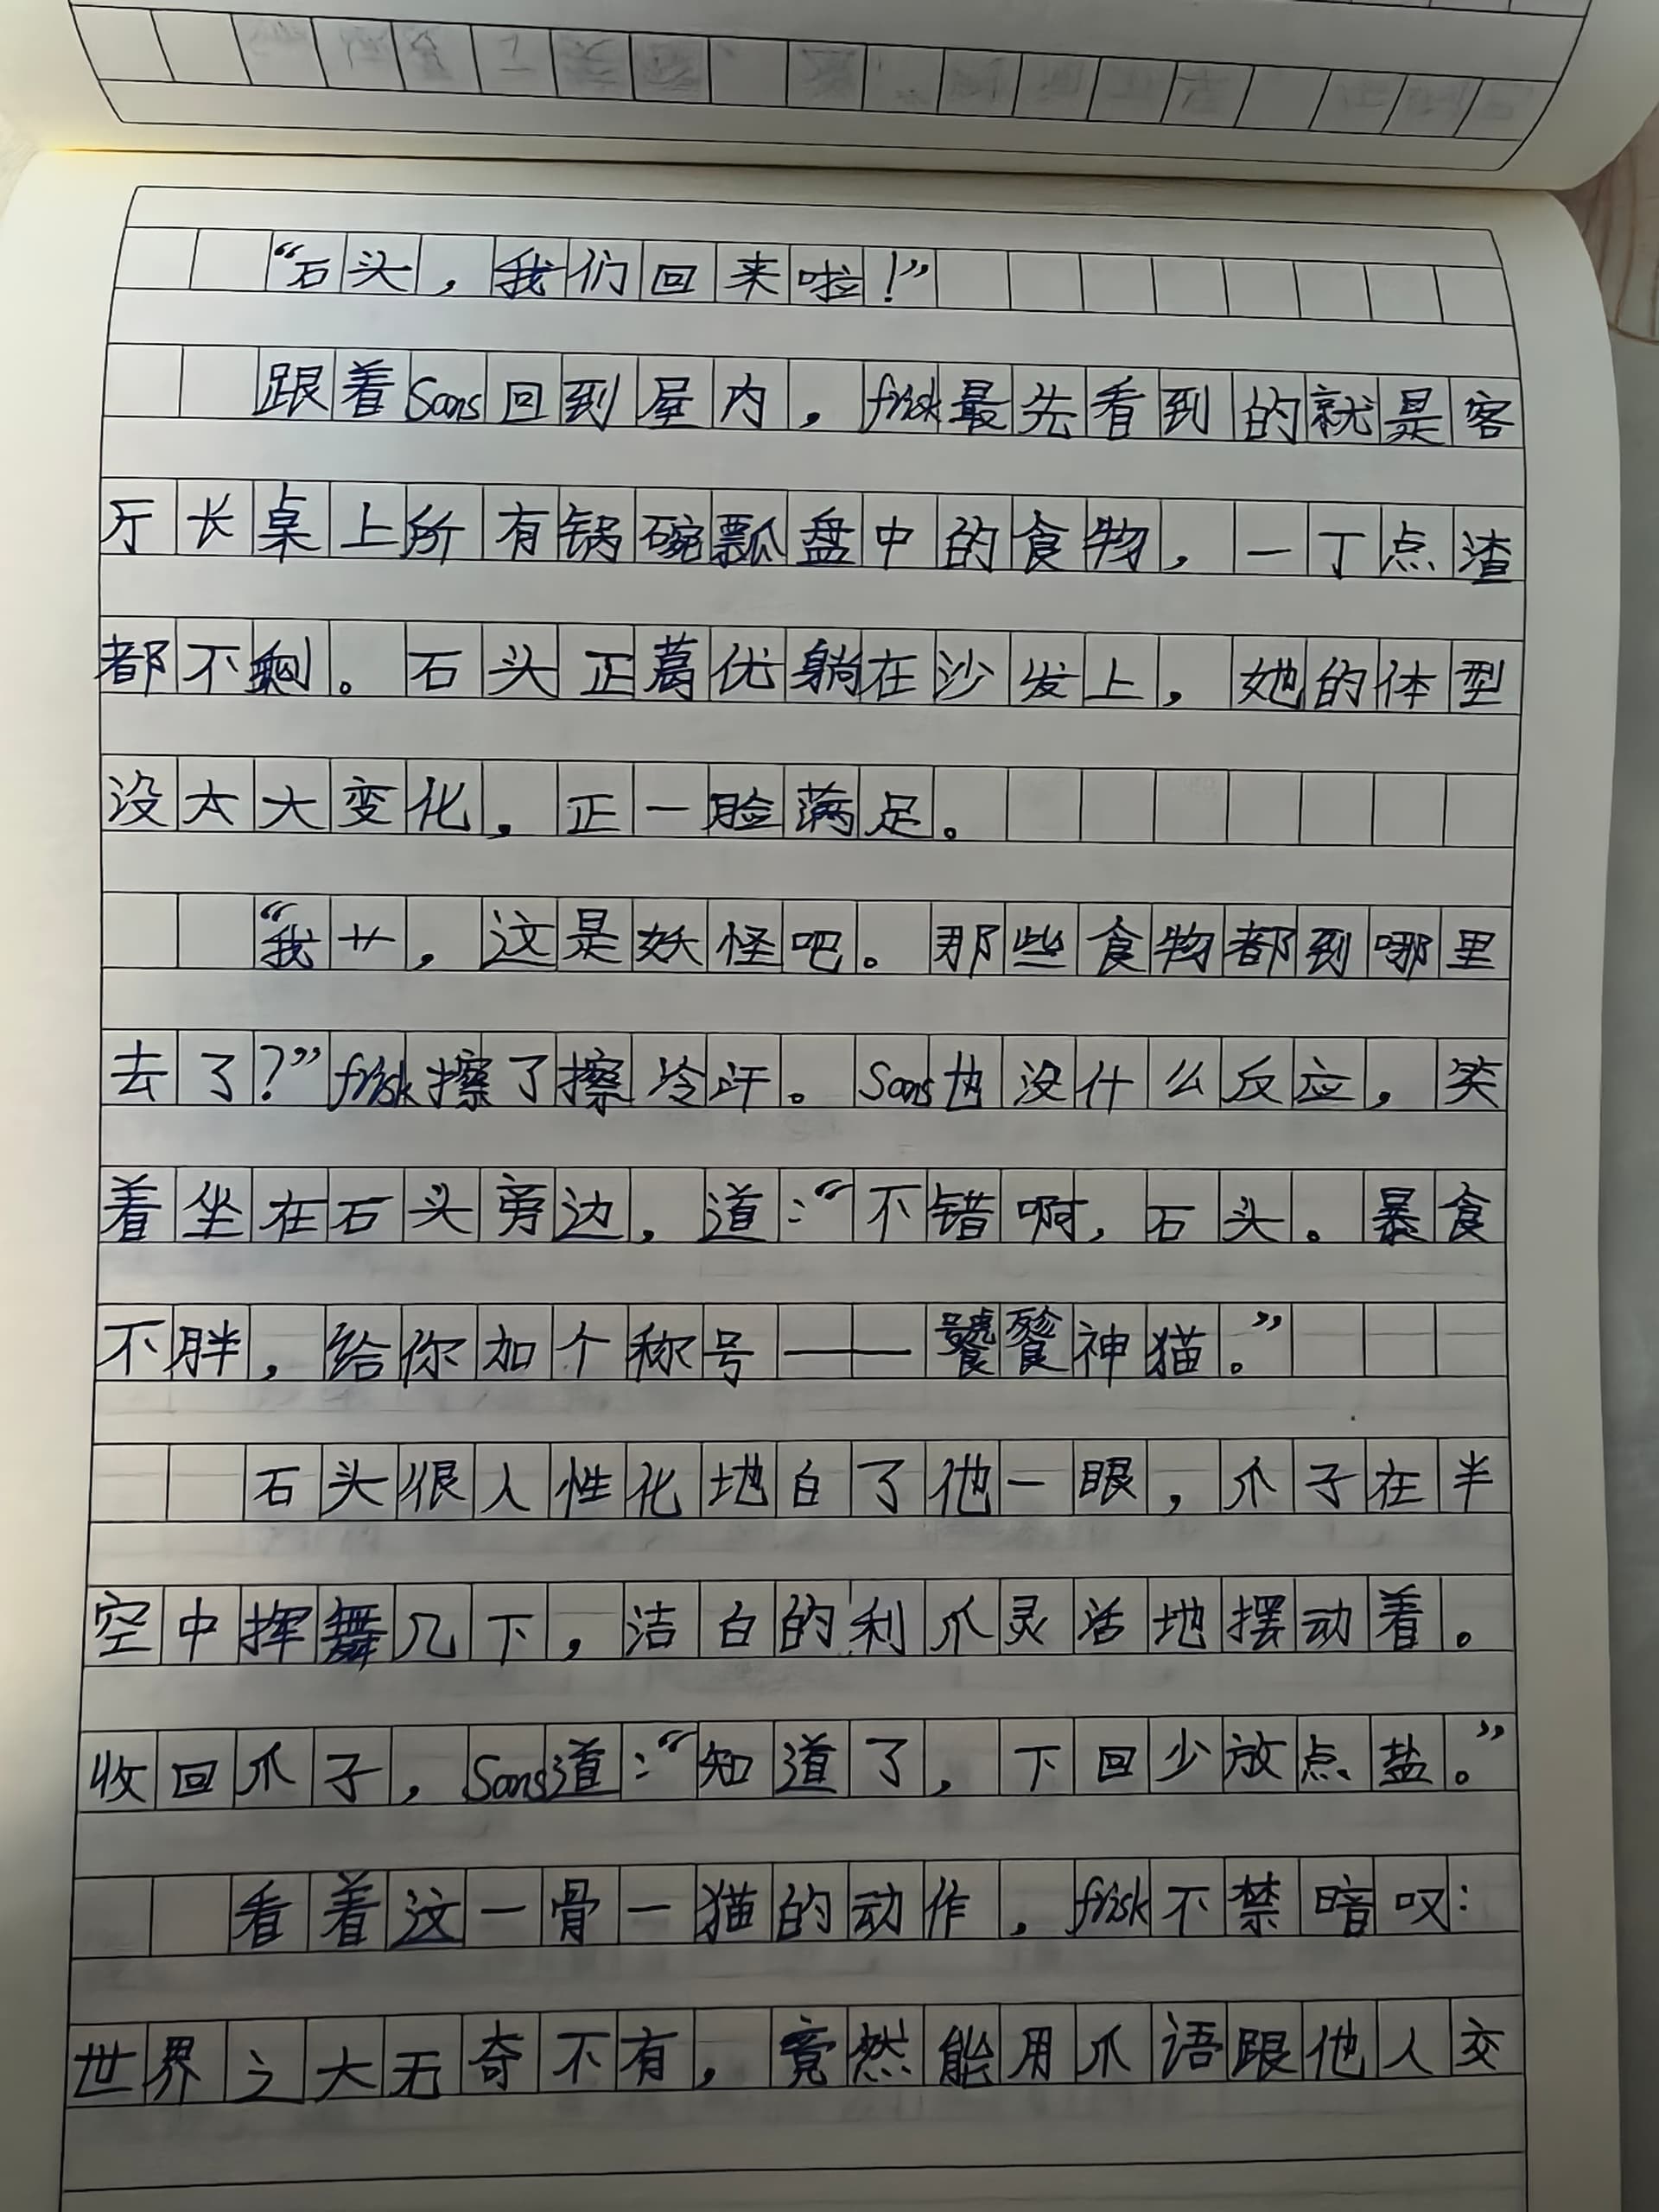 “石头，我们回来啦！”
跟着Sans回到屋内，frisk最先看到的就是客
厅长桌上所有锅碗瓢盘中的食物，一丁点渣
都不剩。石头正葛优躺在沙发上，她的体型
没太大变化，正一脸满足。
“我艹，这是妖怪吧。那些食物都到哪里
去了？”frisk擦了擦冷汗。Sans也没什么反应，笑
着坐在石头旁边，道：“不错啊，石头。暴食
不胖，给你加个称号——饕餮神猫。”
石头很人性化地白了他一眼，爪子在半
空中挥舞几下，洁白的利爪灵活地摆动着。
收回爪子，Sans道：“知道了，下回少放点盐。”
看着这一骨一猫的动作，frisk不禁暗叹：
世界之大无奇不有，竟然能用爪语跟他人交